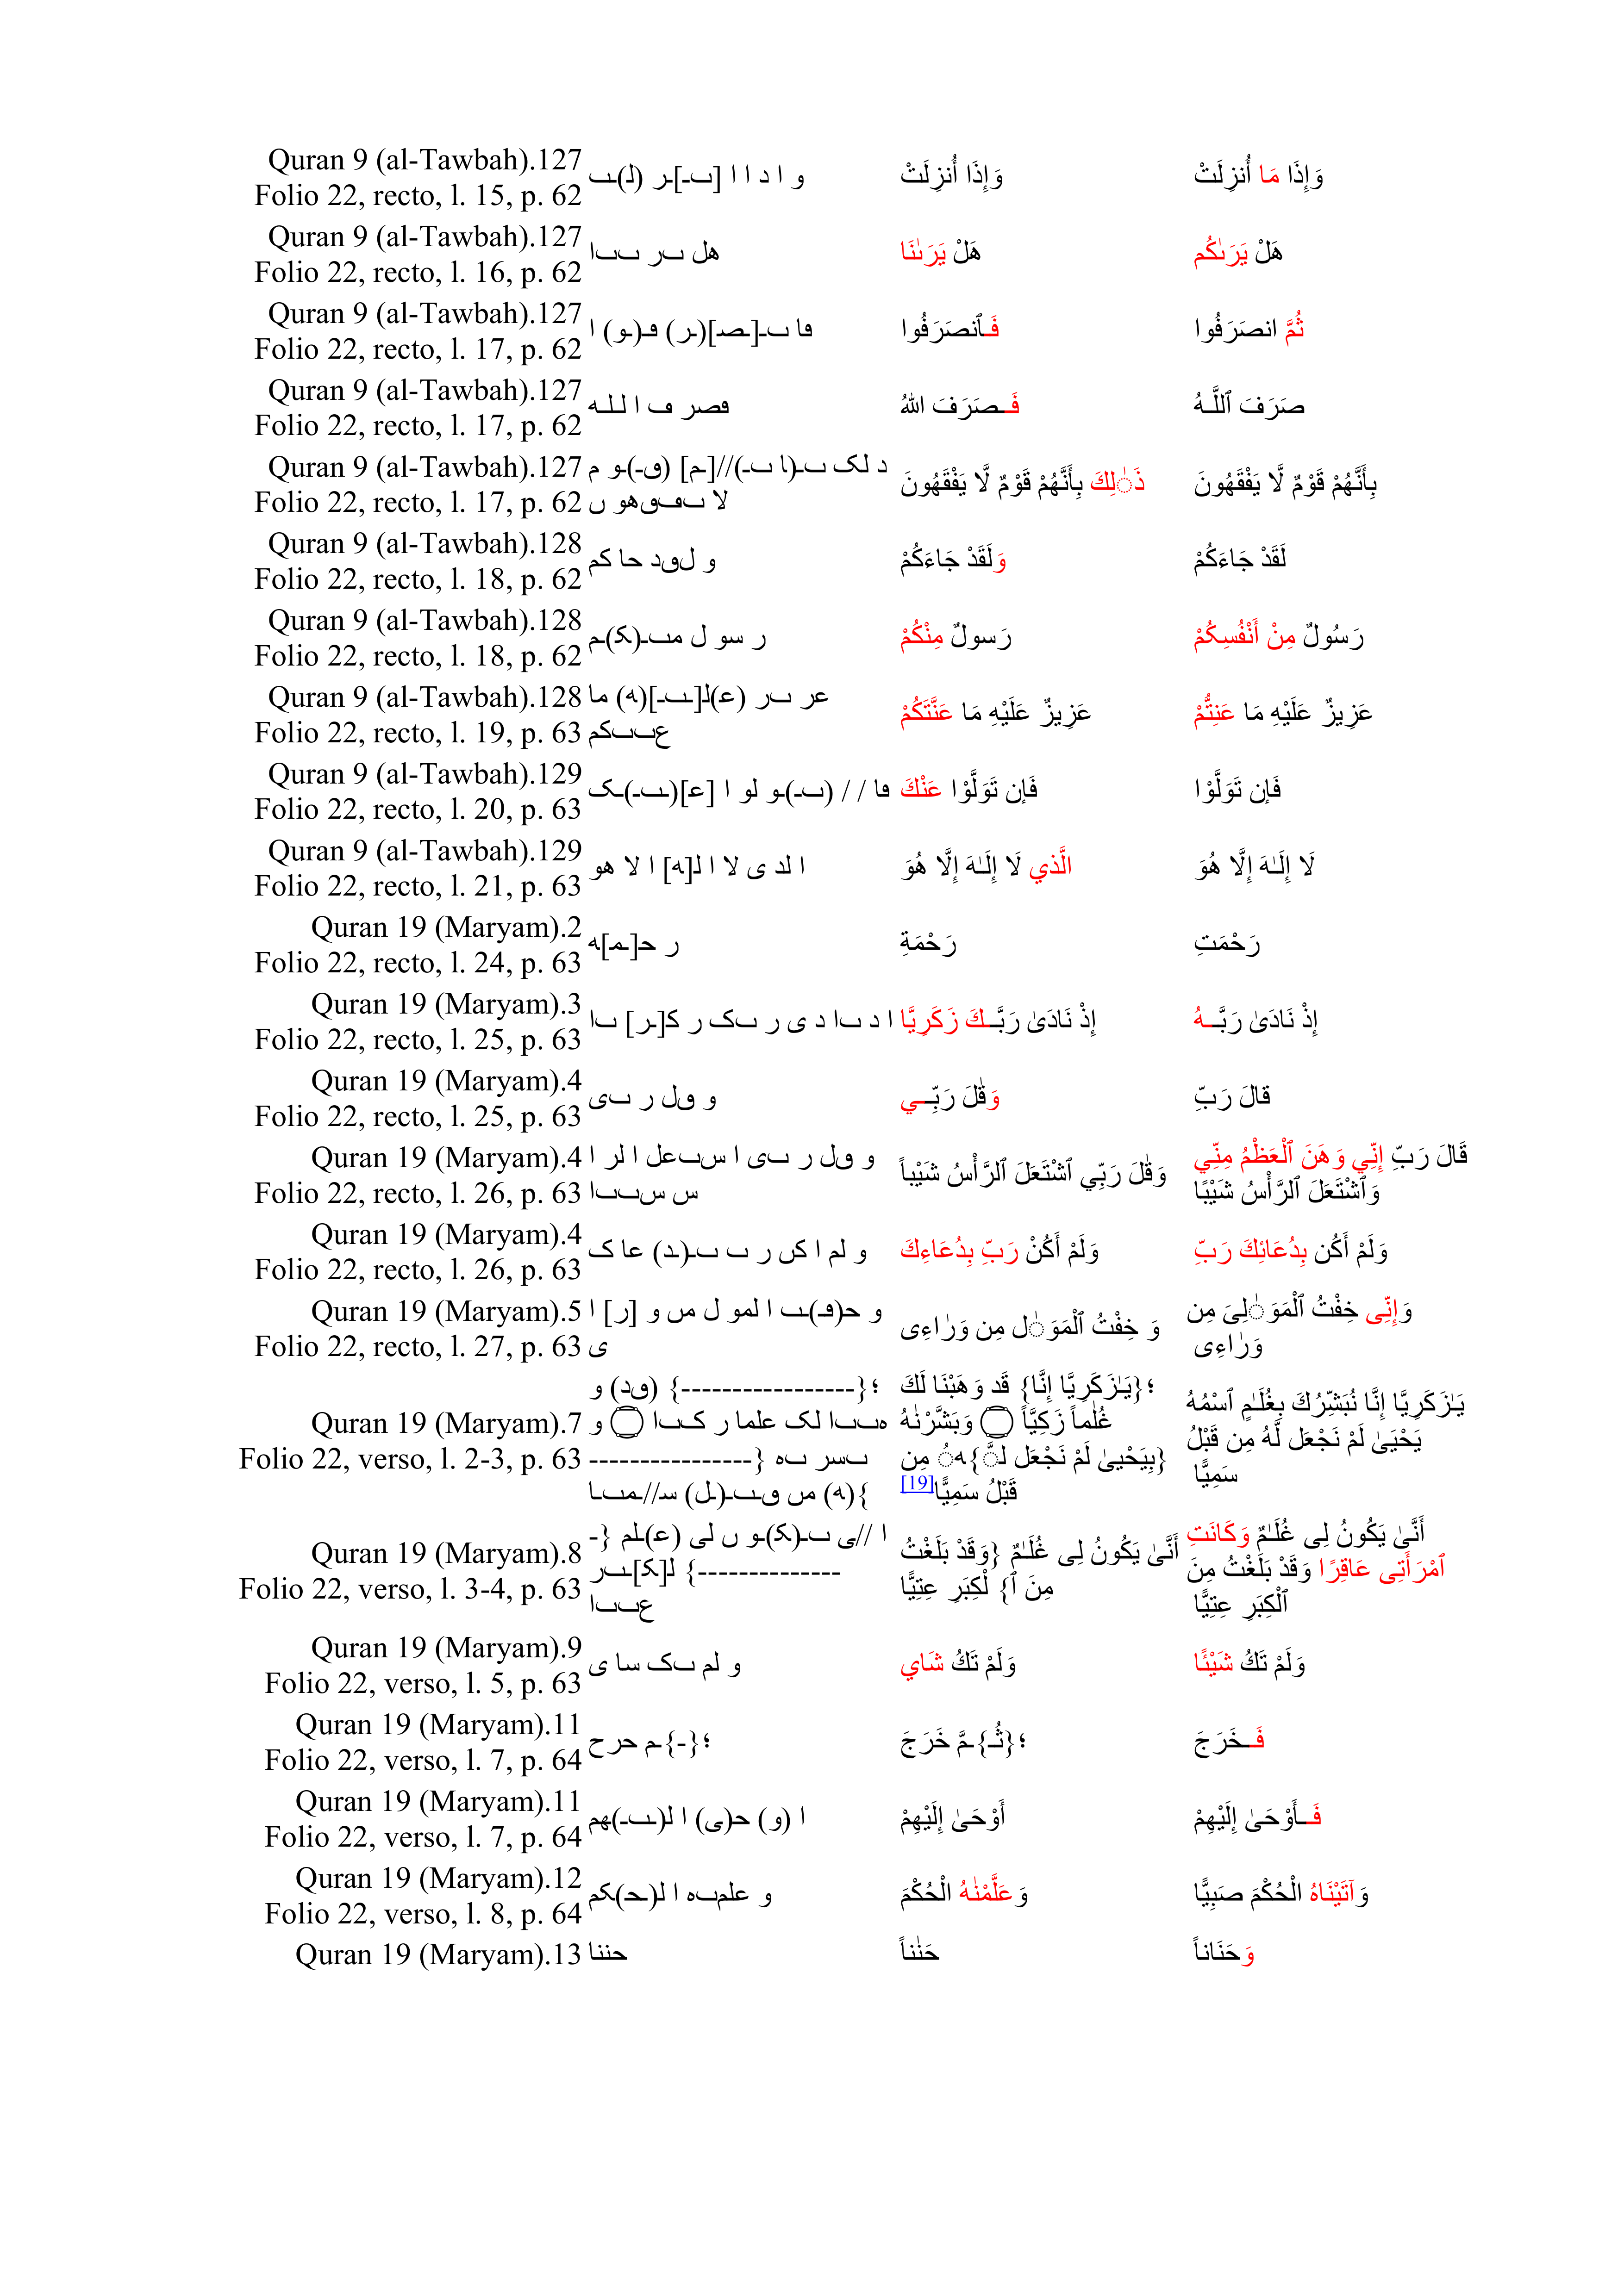 Quran 9 (al-Tawbah).127
Folio 22, recto, l. 15, p. 62
و ا د ا ا [ٮـ]ـر (لـ)ـٮ
وَإِذَا أُنزِلَتْ
وَإِذَا مَا أُنزِلَتْ
Quran 9 (al-Tawbah).127
Folio 22, recto, l. 16, p. 62
هل ٮر ٮٮا
هَلْ يَرَىٰنَا
هَلْ يَرَىٰكُم
Quran 9 (al-Tawbah).127
Folio 22, recto, l. 17, p. 62
ڡا ٮـ[ـصـ](ـر) ڡـ(ـو) ا
فَٱنصَرَفُوا
ثُمَّ انصَرَفُوا
Quran 9 (al-Tawbah).127
Folio 22, recto, l. 17, p. 62
ڡصر ڡ ا لـلـه
فَـصَرَفَ اللهُ
صَرَفَ ٱللَّـهُ
Quran 9 (al-Tawbah).127
Folio 22, recto, l. 17, p. 62
د لک ٮـ(ا ٮـ)//[ـم] (ٯـ)ـو م
لا ٮڡٯهو ں
ذَٰلِكَ بِأَنَّهُمْ قَوْمٌ لَّا يَفْقَهُونَ
بِأَنَّهُمْ قَوْمٌ لَّا يَفْقَهُونَ
Quran 9 (al-Tawbah).128
Folio 22, recto, l. 18, p. 62
و لٯد حا کم
وَلَقَدْ جَاءَكُمْ
لَقَدْ جَاءَكُمْ
Quran 9 (al-Tawbah).128
Folio 22, recto, l. 18, p. 62
ر سو ل مٮـ(ـکـ)ـم
رَسولٌ مِنْكُمْ
رَسُولٌ مِنْ أَنْفُسِكُمْ
Quran 9 (al-Tawbah).128
Folio 22, recto, l. 19, p. 63
عر ٮر (عـ)ـلـ[ـٮـ](ـه) ما
عٮٮکم
عَزِيزٌ عَلَيْهِ مَا عَنَّتَكُمْ
عَزِيزٌ عَلَيْهِ مَا عَنِتُّمْ
Quran 9 (al-Tawbah).129
Folio 22, recto, l. 20, p. 63
ڡا / / (ٮـ)ـو لو ا [عـ](ـٮـ)ـک
فَإِن تَوَلَّوْا عَنْكَ
فَإِن تَوَلَّوْا
Quran 9 (al-Tawbah).129
Folio 22, recto, l. 21, p. 63
ا لد ى لا ا لـ[ـه] ا لا هو
الَّذي لَا إِلَـٰهَ إِلَّا هُوَ
لَا إِلَـٰهَ إِلَّا هُوَ
Quran 19 (Maryam).2
Folio 22, recto, l. 24, p. 63
ر حـ[ـمـ]ـه
رَحْمَةِ
رَحْمَتِ
Quran 19 (Maryam).3
Folio 22, recto, l. 25, p. 63
ا د ٮا د ى ر ٮک ر کـ[ـر] ٮا
إِذْ نَادَىٰ رَبَّـكَ زَكَرِيَّا
إِذْ نَادَىٰ رَبَّـهُ
Quran 19 (Maryam).4
Folio 22, recto, l. 25, p. 63
و ٯل ر ٮى
وَقٰلَ رَبِّـي
قالَ رَبِّ
Quran 19 (Maryam).4
Folio 22, recto, l. 26, p. 63
و ٯل ر ٮى ا سٮعل ا لر ا
س سٮٮا
وَقٰلَ رَبِّي ٱشْتَعَلَ ٱلرَّأْسُ شَيْباً
قَالَ رَبِّ إِنِّي وَهَنَ ٱلْعَظْمُ مِنِّي
وَٱشْتَعَلَ ٱلرَّأْسُ شَيْبًا
Quran 19 (Maryam).4
Folio 22, recto, l. 26, p. 63
و لم ا کں ر ٮ ٮـ(ـد) عا ک
وَلَمْ أَكُنْ رَبِّ بِدُعَاءِكَ
وَلَمْ أَكُن بِدُعَائِكَ رَبِّ
Quran 19 (Maryam).5
Folio 22, recto, l. 27, p. 63
و حـ(ـڡـ)ـٮ ا لمو ل مں و [ر] ا
ى
وَ خِفْتُ ٱلْمَوَٰل مِن وَرٰاءِى
وَإِنِّى خِفْتُ ٱلْمَوَٰلِىَ مِن
وَرٰاءِى
Quran 19 (Maryam).7
Folio 22, verso, l. 2-3, p. 63
؛{-----------------} (ٯد) و
هٮٮا لک علما ر کٮا ۝ و
ٮسر ٮه {----------------
}(ـه) مں ٯٮـ(ـل) سـ//ـمٮـا
؛{يَـٰزَكَرِيَّا إِنَّا} قَد وَهَبْنَا لَكَ
غُلٰماً زَكِيَّاً ۝ وَبَشَّرْنٰهُ
{بِيَحْيىٰ لَمْ نَجْعَل لَّ}ـهُ مِن
قَبْلُ سَمِيًّا[19]
يَـٰزَكَرِيَّا إِنَّا نُبَشِّرُكَ بِغُلَـٰمٍ ٱسْمُهُ
يَحْيَىٰ لَمْ نَجْعَل لَّهُ مِن قَبْلُ
سَمِيًّا
Quran 19 (Maryam).8
Folio 22, verso, l. 3-4, p. 63
ا //ى ٮـ(ـکـ)ـو ں لى (عـ)ـلم {-
--------------} لـ[ـکـ]ـٮر
عٮٮا
أَنَّىٰ يَكُونُ لِى غُلَـٰمٌ {وَقَدْ بَلَغْتُ
مِنَ ٱ} لْكِبَرِ عِتِيًّا
أَنَّىٰ يَكُونُ لِى غُلَـٰمٌ وَكَانَتِ
ٱمْرَأَتِى عَاقِرًا وَقَدْ بَلَغْتُ مِنَ
ٱلْكِبَرِ عِتِيًّا
Quran 19 (Maryam).9
Folio 22, verso, l. 5, p. 63
و لم ٮک سا ى
وَلَمْ تَكُ شَاي
وَلَمْ تَكُ شَيْئًا
Quran 19 (Maryam).11
Folio 22, verso, l. 7, p. 64
؛{-}ـم حرح
؛{ثُـ}ـمَّ خَرَجَ
فَـخَرَجَ
Quran 19 (Maryam).11
Folio 22, verso, l. 7, p. 64
ا (و) حـ(ـى) ا لـ(ـٮـ)ـهم
أَوْحَىٰ إِلَيْهِمْ
فَـأَوْحَىٰ إِلَيْهِمْ
Quran 19 (Maryam).12
Folio 22, verso, l. 8, p. 64
و علمٮه ا لـ(ـحـ)ـکم
وَعَلَّمْنٰهُ الْحُكْمَ
وَآتَيْنَاهُ الْحُكْمَ صَبِيًّا
Quran 19 (Maryam).13
حننا
حَنٰناً
وَحَنَاناً